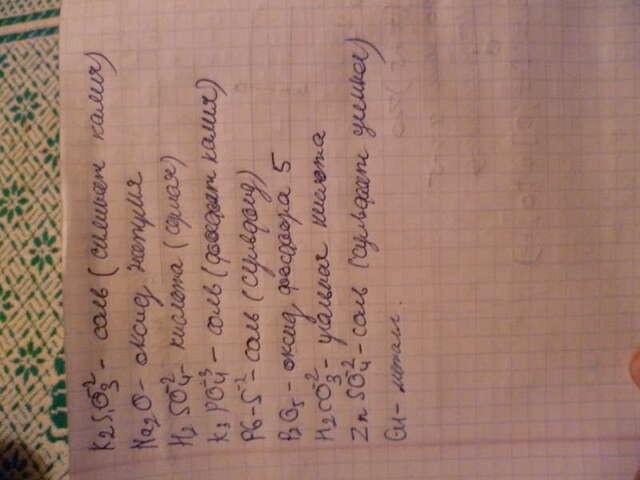 K₂SiO₃⁻² - соль (силикат калия)
Na₂O - оксид натрия
H₂SO₄⁻² - кислота (серная)
K₃PO₄⁻³ - соль (фосфат калия)
Pb-S⁻² - соль (сульфид)
P₂O₅ - оксид фосфора 5
H₂CO₃⁻² - угольная кислота
ZnSO₄⁻² - соль (сульфат цинка)
Cu - металл.